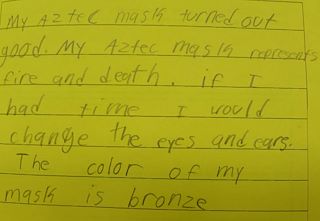 My Aztec mask turned out
good. My Aztec mask represents
fire and death. if I
had time I would
change the eyes and ears.
The color of my
mask is bronze